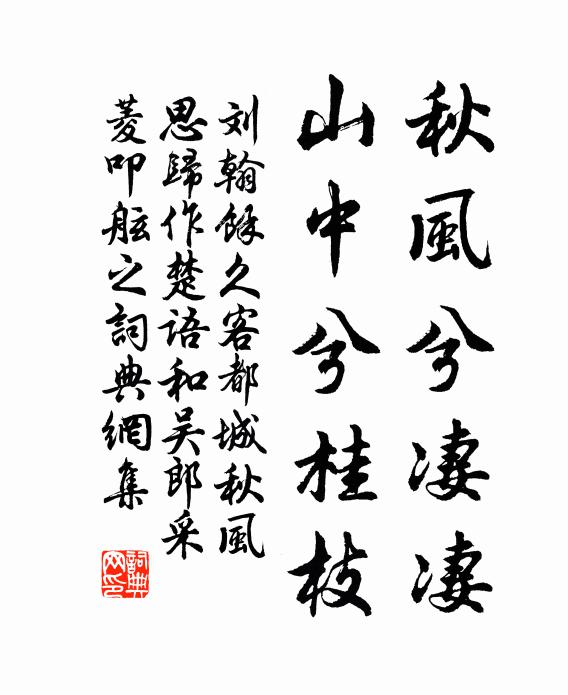 秋風兮淒淒
山中兮桂枝
刘翰餘久客都城秋風
思歸作楚語和吴郎采
菱叩舷之詞典網集
詞典网印